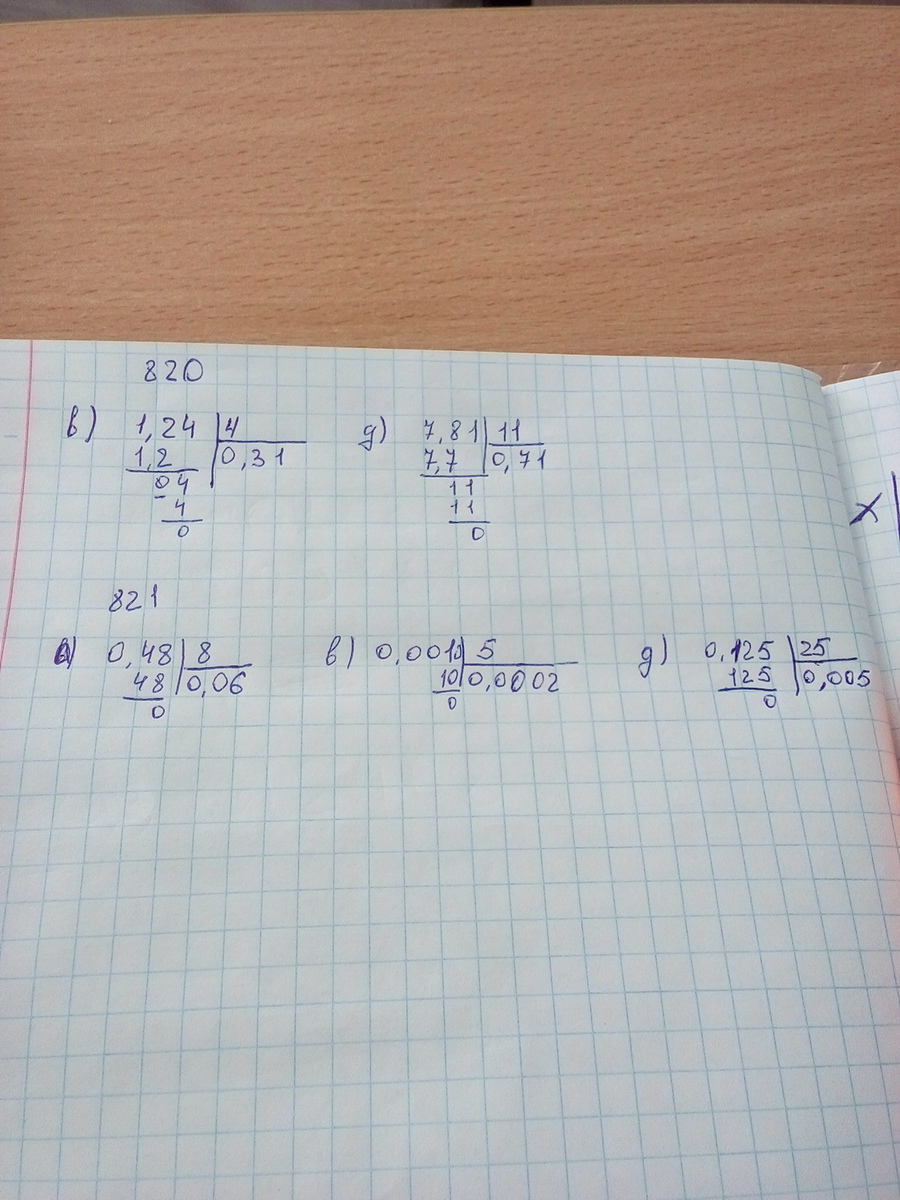 820
в) 1,24 4 д) 7,81 11
1,2 0,31 7,7 0,71
04 11
4 11
0 0
821
а) 0,48 8 в) 0,0010 5 д) 0,125 25
48 0,06 10 0,0002 125 0,005
0 0 0